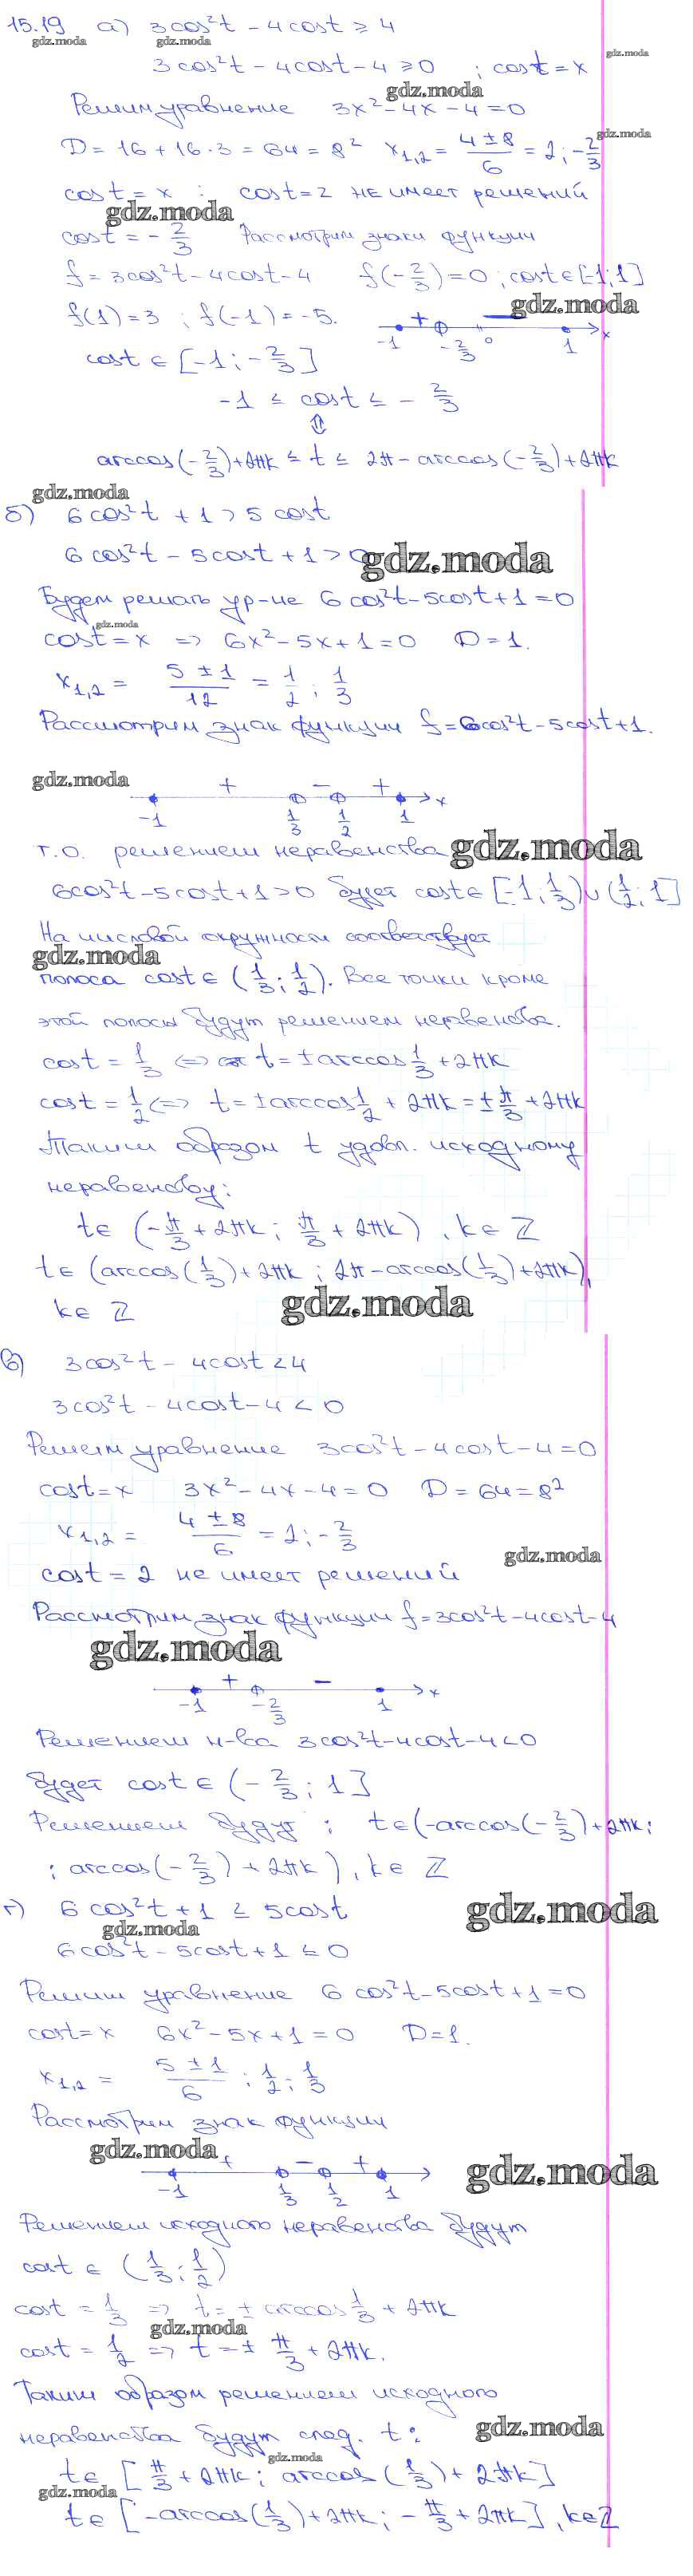 15.19 а) 3cos²t - 4cost ≥ 4
gdz.moda gdz.moda gdz.moda
3cos²t - 4cost - 4 ≥ 0 ; cost = x
gdz.moda
Решим уравнение 3x² - 4x - 4 = 0
gdz.moda
D = 16 + 16·3 = 64 = 8² x₁,₂ = (4 ± 8)/6 = 2; -2/3
cost = x : cost = 2 не имеет решений
gdz.moda
cost = -2/3 Рассмотрим знаки функции
f = 3cos²t - 4cost - 4 f(-2/3) = 0 ; cost ∈ [-1; 1]
gdz.moda
f(1) = 3 ; f(-1) = -5.
+ −
-1 -2/3 0 1 x
cost ∈ [-1; -2/3]
-1 ≤ cost ≤ -2/3
⇕
arccos(-2/3) + 2πk ≤ t ≤ 2π - arccos(-2/3) + 2πk
gdz.moda
б) 6cos²t + 1 > 5cost
6cos²t - 5cost + 1 > 0
gdz.moda
Будем решать ур-ие 6cos²t - 5cost + 1 = 0
gdz.moda
cost = x => 6x² - 5x + 1 = 0 D = 1.
x₁,₂ = (5 ± 1)/12 = 1/2; 1/3
Рассмотрим знак функции f = 6cos²t - 5cost + 1.
gdz.moda
+ − +
-1 1/3 1/2 1 x
т.о. решением неравенства
gdz.moda
6cos²t - 5cost + 1 > 0 будет cost ∈ [-1; 1/3) ∪ (1/2; 1]
На числовой окружности соответствует
gdz.moda
полоса cost ∈ (1/3; 1/2). Все точки кроме
этой полосы будут решением неравенства.
cost = 1/3 <=> t = ±arccos 1/3 + 2πk
cost = 1/2 <=> t = ±arccos 1/2 + 2πk = ±π/3 + 2πk
Таким образом t удовл. исходному
неравенству:
t ∈ (-π/3 + 2πk; π/3 + 2πk), k ∈ Z
t ∈ (arccos(1/3) + 2πk; 2π - arccos(1/3) + 2πk),
k ∈ Z
gdz.moda
в) 3cos²t - 4cost < 4
3cos²t - 4cost - 4 < 0
Решим уравнение 3cos²t - 4cost - 4 = 0
cost = x 3x² - 4x - 4 = 0 D = 64 = 8²
x₁,₂ = (4 ± 8)/6 = 2; -2/3
gdz.moda
cost = 2 не имеет решений
Рассмотрим знак функции f = 3cos²t - 4cost - 4
gdz.moda
+ −
-1 -2/3 1 x
Решением н-ва 3cos²t - 4cost - 4 < 0
будет cost ∈ (-2/3; 1]
Решением будут : t ∈ (-arccos(-2/3) + 2πk;
; arccos(-2/3) + 2πk), k ∈ Z
г) 6cos²t + 1 ≤ 5cost
gdz.moda gdz.moda
6cos²t - 5cost + 1 ≤ 0
Решим уравнение 6cos²t - 5cost + 1 = 0
cost = x 6x² - 5x + 1 = 0 D = 1.
x₁,₂ = (5 ± 1)/6 ; 1/2; 1/3
Рассмотрим знак функции
gdz.moda gdz.moda
+ − +
-1 1/3 1/2 1
Решением исходного неравенства будут
cost ∈ (1/3; 1/2)
cost = 1/3 => t = ±arccos 1/3 + 2πk
gdz.moda
cost = 1/2 => t = ±π/3 + 2πk.
Таким образом решением исходного
неравенства будут след. t:
gdz.moda
gdz.moda
t ∈ [π/3 + 2πk; arccos(1/3) + 2πk]
gdz.moda
t ∈ [-arccos(1/3) + 2πk; -π/3 + 2πk], k ∈ Z